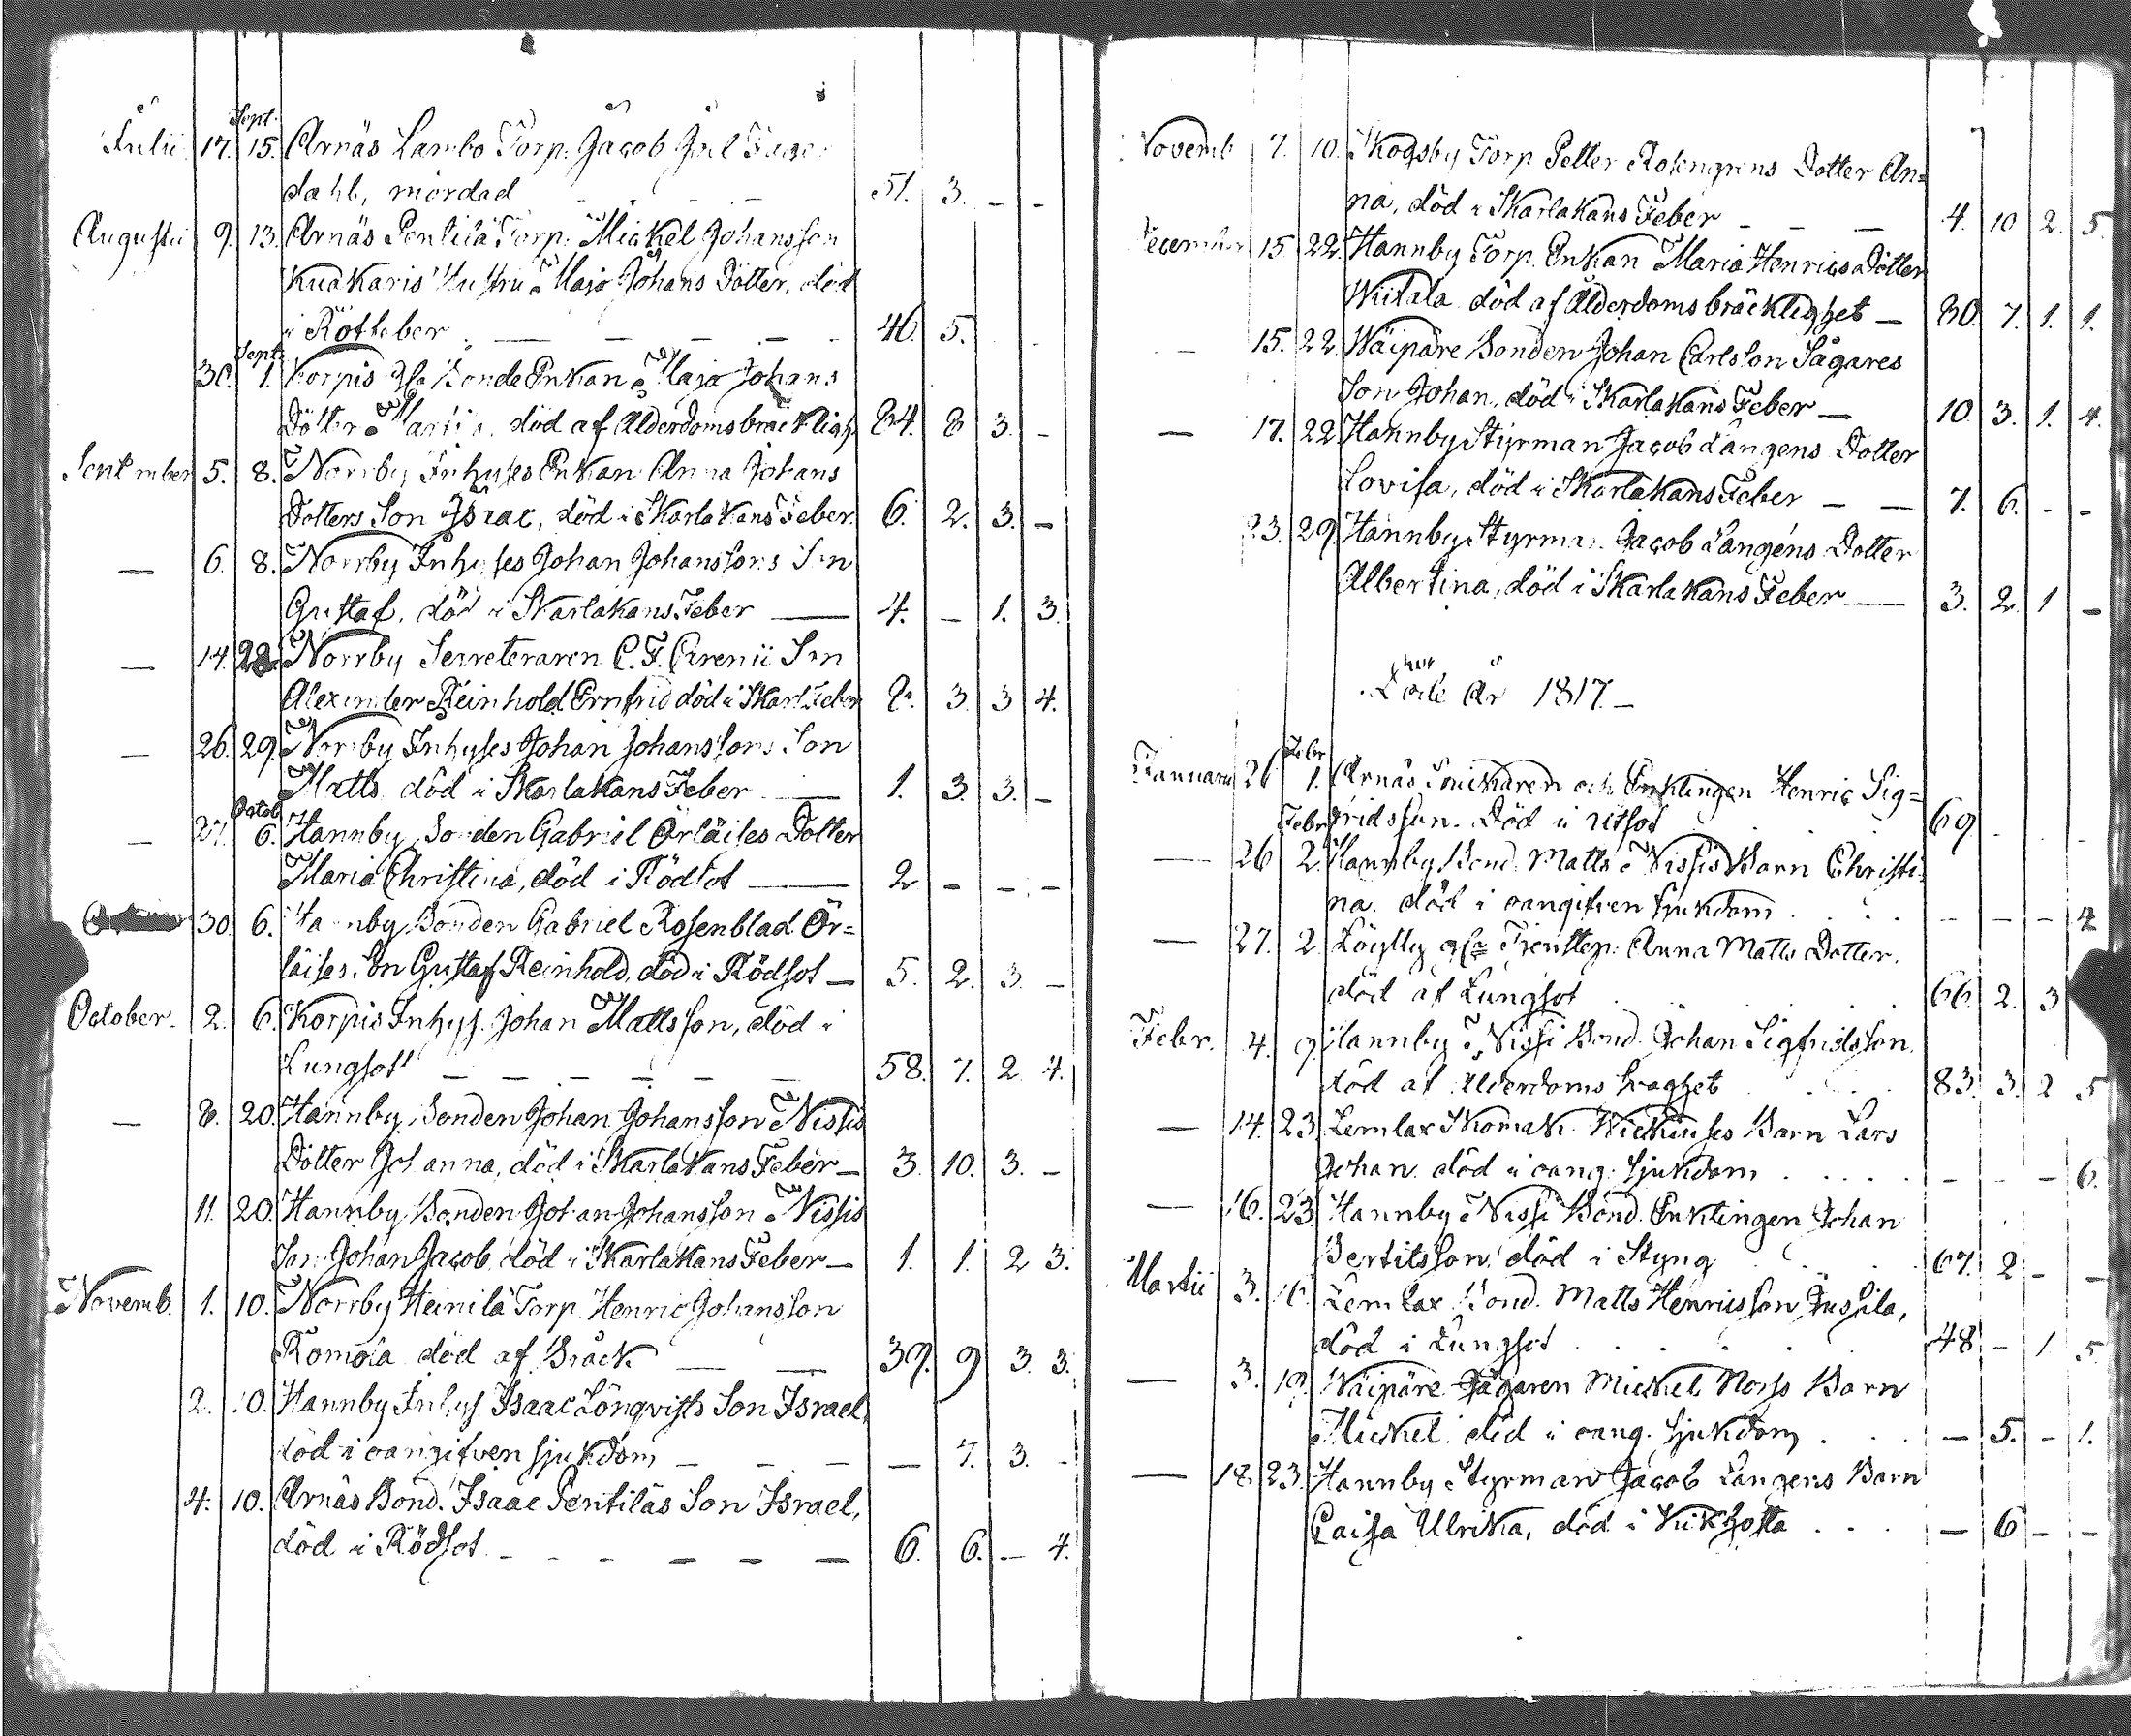 Sept.
Julii 17. 15. Arnäs Lambo Torp. Jacob Joel
dahl, mördad - - - 51. 3. - -
Augustii 9. 13. Arnäs Pentilä Torp. Mickel Johansson
Kuakaris Hustru Maja Johans Dotter, död
i Rötfeber - - - - 46. 5.
Sept.
30. 1. Korpis gla Bonde Enkan Maja Johans
Dotter död af Ålderdomsbräckligh. 84. 8 3. -
September 5. 8. Norrby Inhyses Enkan Anna Johans
Dotters Son Israc, död i Skarlakans Feber. 6. 2. 3. -
— 6. 8. Norrby Inhyses Johan Johanssons Son
Gustaf, död i Skarlakans Feber — 4. - 1. 3.
— 14. 22. Norrby Secreteraren C. F. Cirenii Son
Alexander Reinhold Ernfrid död i Skarl. Feber 8. 3. 3 4.
— 26. 29. Norrby Inhyses Johan Johanssons Son
Matts död i Skarlakans Feber — 1. 3. 3. -
Octob.
— 27. 6. Hannby Bonden Gabriel Örläises Dotter
Maria Christina, död i Rödsot — 2 - - -
30. 6. Hannby Bonden Gabriel Rosenblad Ör=
läises Son Gustaf Reinhold, död i Rödsot — 5. 2. 3. -
October. 2. 6. Korpis Inhys. Johan Mattsson, död i
Lungsot - - - - - - 58. 7. 2 4.
— 8. 20. Hannby Bonden Johan Johansson Nissis
Dotter Johanna, död i Skarlakans Feber — 3. 10. 3. -
11. 20. Hannby Bonden Johan Johansson Nissis
Son Johan Jacob, död i Skarlakans Feber — 1. 1. 2 3.
Novemb. 1. 10. Norrby Heinilä Torp. Henric Johansson
Romola död af Bråck — — 39. 9 3. 3.
2. 10. Hannby Inhys. Isaac Lönqvists Son Israel,
död i oangifven sjukdom - - - — 7. 3. -
4. 10. Arnäs Bond. Isaac Pentiläs Son Israel,
död i Rödsot - - - - - - 6. 6. - 4.
Novemb. 7. 10. Skogsby Torp Petter Rosengrens Dotter An=
na, död i Skarlakans Feber - - - 4. 10 2. 5.
December 15 22. Hannby Torp. Enkan Maria Henrics Dotter
Wiitala död af Ålderdomsbräcklighet — 80. 7. 1. 1.
— 15. 22. Wäipäre Bonden Johan Carlsson Sågares
Son Johan, död i Skarlakans Feber — 10. 3. 1. 4.
— 17. 22 Hannby Styrman Jacob Långens Dotter
Lovisa, död i Skarlakans Feber — — 7. 6. - -
23. 29. Hannby Styrman Jacob Långens Dotter
Albertina, död i Skarlakans Feber — 3. 2. 1 -
År 1817. -
Febr.
Januarii 26 1. Arnäs Snickaren och Enklingen Henric Sig=
fridsson. Död i Utsot 69
Febr.
— 26 2. Hannby Bond. Matts Nissis Barn Christi
na. död i oangifven sjukdom - - - 4
— 27. 2 Löytty gla Tjenstep. Anna Matts Dotter.
död af Lungsot 66. 2. 3
Febr. 4. 9. Hannby Nissi Bond. Johan Sigfridsson.
död af Ålderdoms svaghet 83. 3. 2 5
— 14. 23 Lemlax Skomak. Barn Lars
Johan död i oang. sjukdom - - - 6.
— 16. 23 Hannby Nissi Bond. Enklingen Johan
Bertilsson död i Styng 67. 2 - -
Martii 3. 16. Lemlax Bond. Matts Henricsson Jussila,
död i Lungsot 48 - 1 5
— 3. 19. Wäipäre Sågaren Mickel Norss Barn
Mickel. död i oang. sjukdom. — 5. - 1.
— 18. 23. Hannby Styrman Jacob Långens Barn
Caisa Ulrika, död i Kikhosta — 6 - -